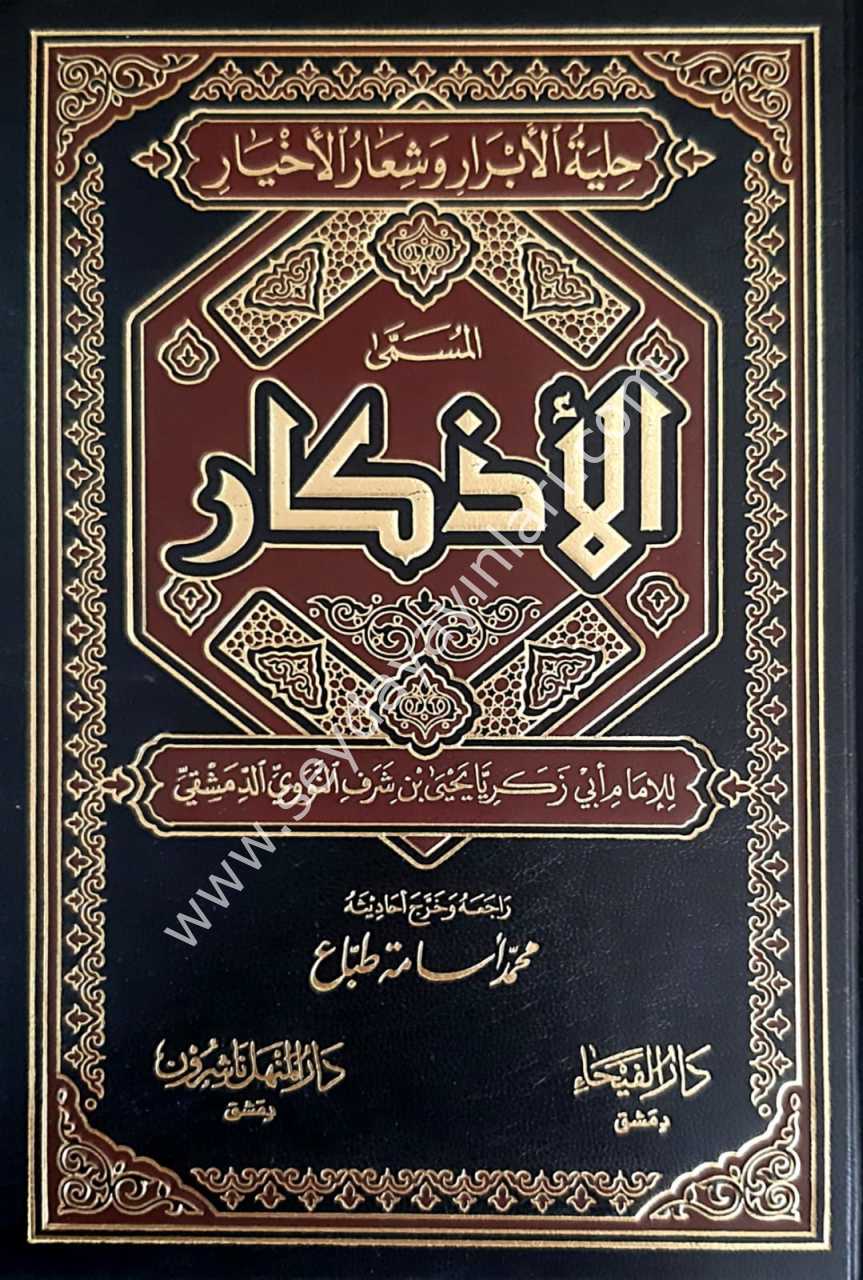 حِليَةُ الأَبْرَارِ وَشِعَارُ الأَخْيَارِ
المُسَمَّىٰ
الأذكار
لِلإمَامِ أبي زَكَرِيَّا يَحْيَىٰ بْنِ شَرَفِ النَّوَوِيِّ الدِّمَشْقِيِّ
رَاجَعَهُ وَخَرَّجَ أحَادِيثَهُ
محمّد أسامة طبّاع
دَارُ الفَيْحَاءِ
دِمَشق
دَارُ المَنْهَل نَاشِرُون
دِمَشق
www.seydayayinlari.com